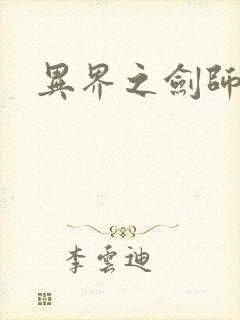 異界之劍師
李雲迪